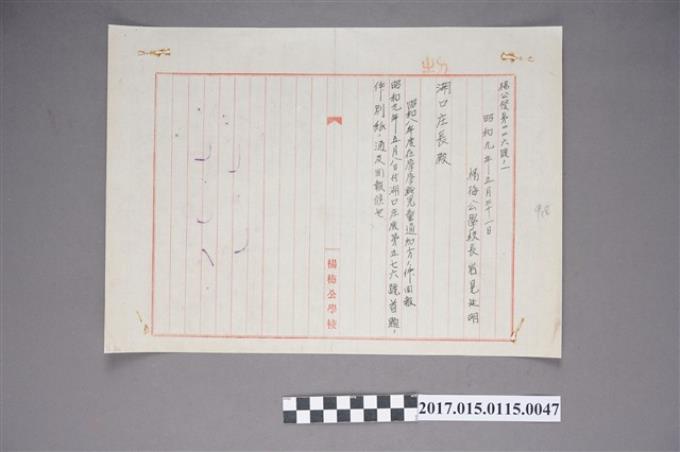 楊公發第一一六號ノ一
昭和九年五月三十一日
楊梅公學校長
湖口庄長殿
昭和八年度在席學齡兒童通知方ノ件回報
昭和九年五月八日付湖口庄庶第五七六號首題ノ
件別紙ノ通及回報候也
楊梅公學校
2017.015.0115.0047